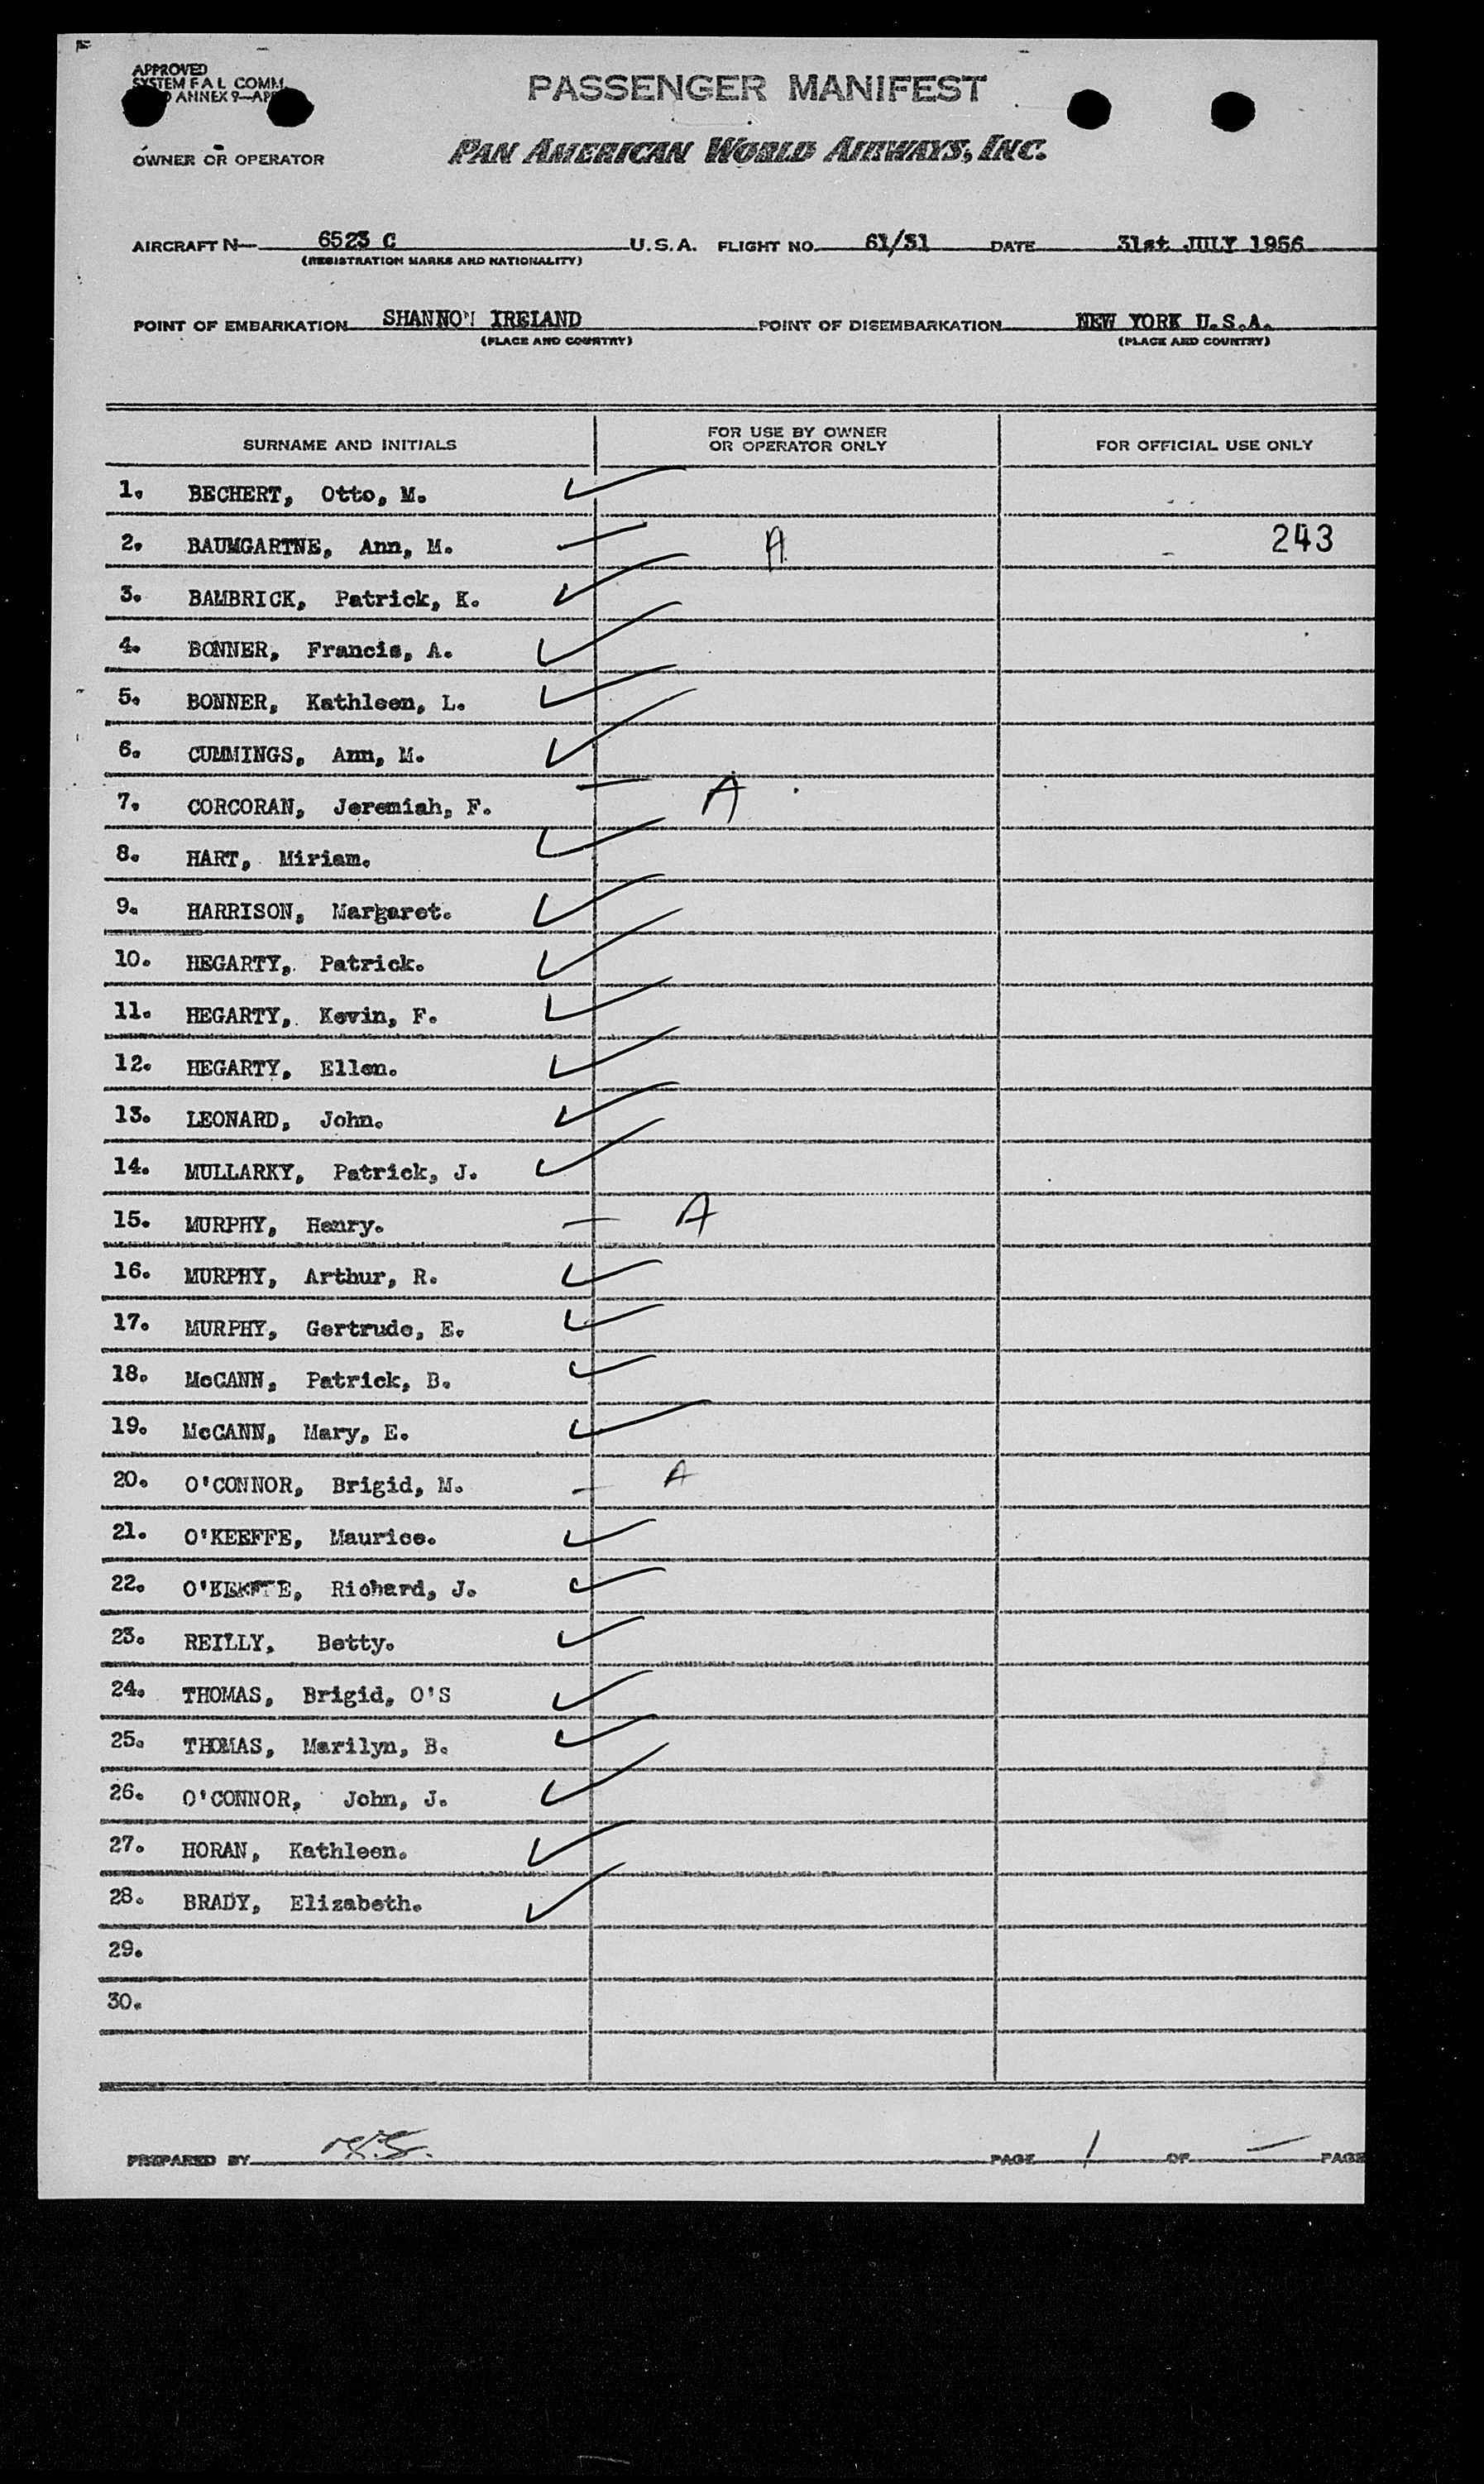 APPROVED
SYSTEM F A L COMM.
ANNEX 9—AP
PASSENGER MANIFEST
OWNER OR OPERATOR
PAN AMERICAN WORLD AIRWAYS, INC.
AIRCRAFT N— 6523 C U.S.A. FLIGHT NO. 61/31 DATE 31st JULY 1956
(REGISTRATION MARKS AND NATIONALITY)
POINT OF EMBARKATION SHANNON IRELAND POINT OF DISEMBARKATION NEW YORK U.S.A.
(PLACE AND COUNTRY) (PLACE AND COUNTRY)
SURNAME AND INITIALS FOR USE BY OWNER OR OPERATOR ONLY FOR OFFICIAL USE ONLY
1. BECHERT, Otto, M.
2. BAUMGARTNE, Ann, M. A 243
3. BAMBRICK, Patrick, K.
4. BONNER, Francis, A.
5. BONNER, Kathleen, L.
6. CUMMINGS, Ann, M.
7. CORCORAN, Jeremiah, F. A
8. HART, Miriam.
9. HARRISON, Margaret.
10. HEGARTY, Patrick.
11. HEGARTY, Kevin, F.
12. HEGARTY, Ellen.
13. LEONARD, John.
14. MULLARKY, Patrick, J.
15. MURPHY, Henry. A
16. MURPHY, Arthur, R.
17. MURPHY, Gertrude, E.
18. McCANN, Patrick, B.
19. McCANN, Mary, E.
20. O'CONNOR, Brigid, M. A
21. O'KEEFFE, Maurice.
22. O'KEEFFE, Richard, J.
23. REILLY, Betty.
24. THOMAS, Brigid, O'S
25. THOMAS, Marilyn, B.
26. O'CONNOR, John, J.
27. HORAN, Kathleen.
28. BRADY, Elizabeth.
29.
30.
PREPARED BY PAGE 1 OF — PAGE